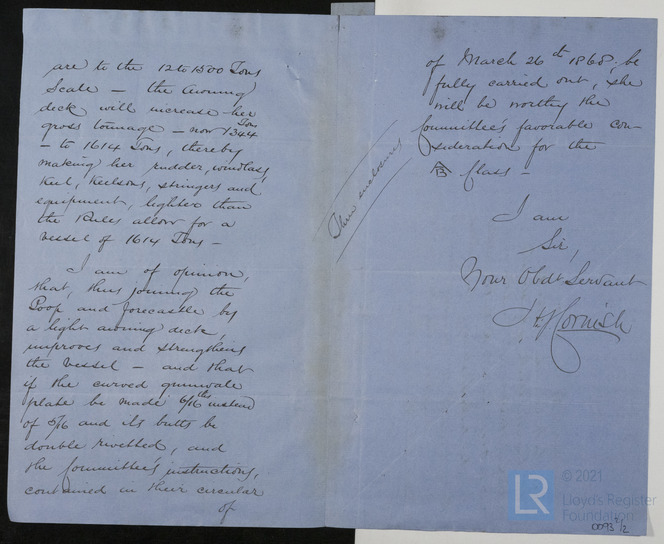 are to the 12 to 1500 Tons
Scale — the awning
deck will increase her
gross tonnage — now 1344 Tons
— to 1614 Tons, thereby
making her rudder, windlass,
keel, keelsons, stringers and
equipment, lighter than
the Rules allow for a
vessel of 1614 Tons —
I am of opinion,
that, thus joining the
Poop and forecastle by
a light awning deck,
improves and strengthens
the vessel — and that
if the curved gunwale
plate be made 6/16ths instead
of 5/16 and its butts be
double rivetted, and
the Committee's instructions,
contained in their circular
of
Three enclosures
of March 26th 1868, be
fully carried out, she
will be worthy the
Committee's favorable con-
sideration for the
A
B Class —
I am
Sir,
Your Obdt Servant
Cornish
© 2021
LR
Lloyd's Register
Foundation
0093 2/2